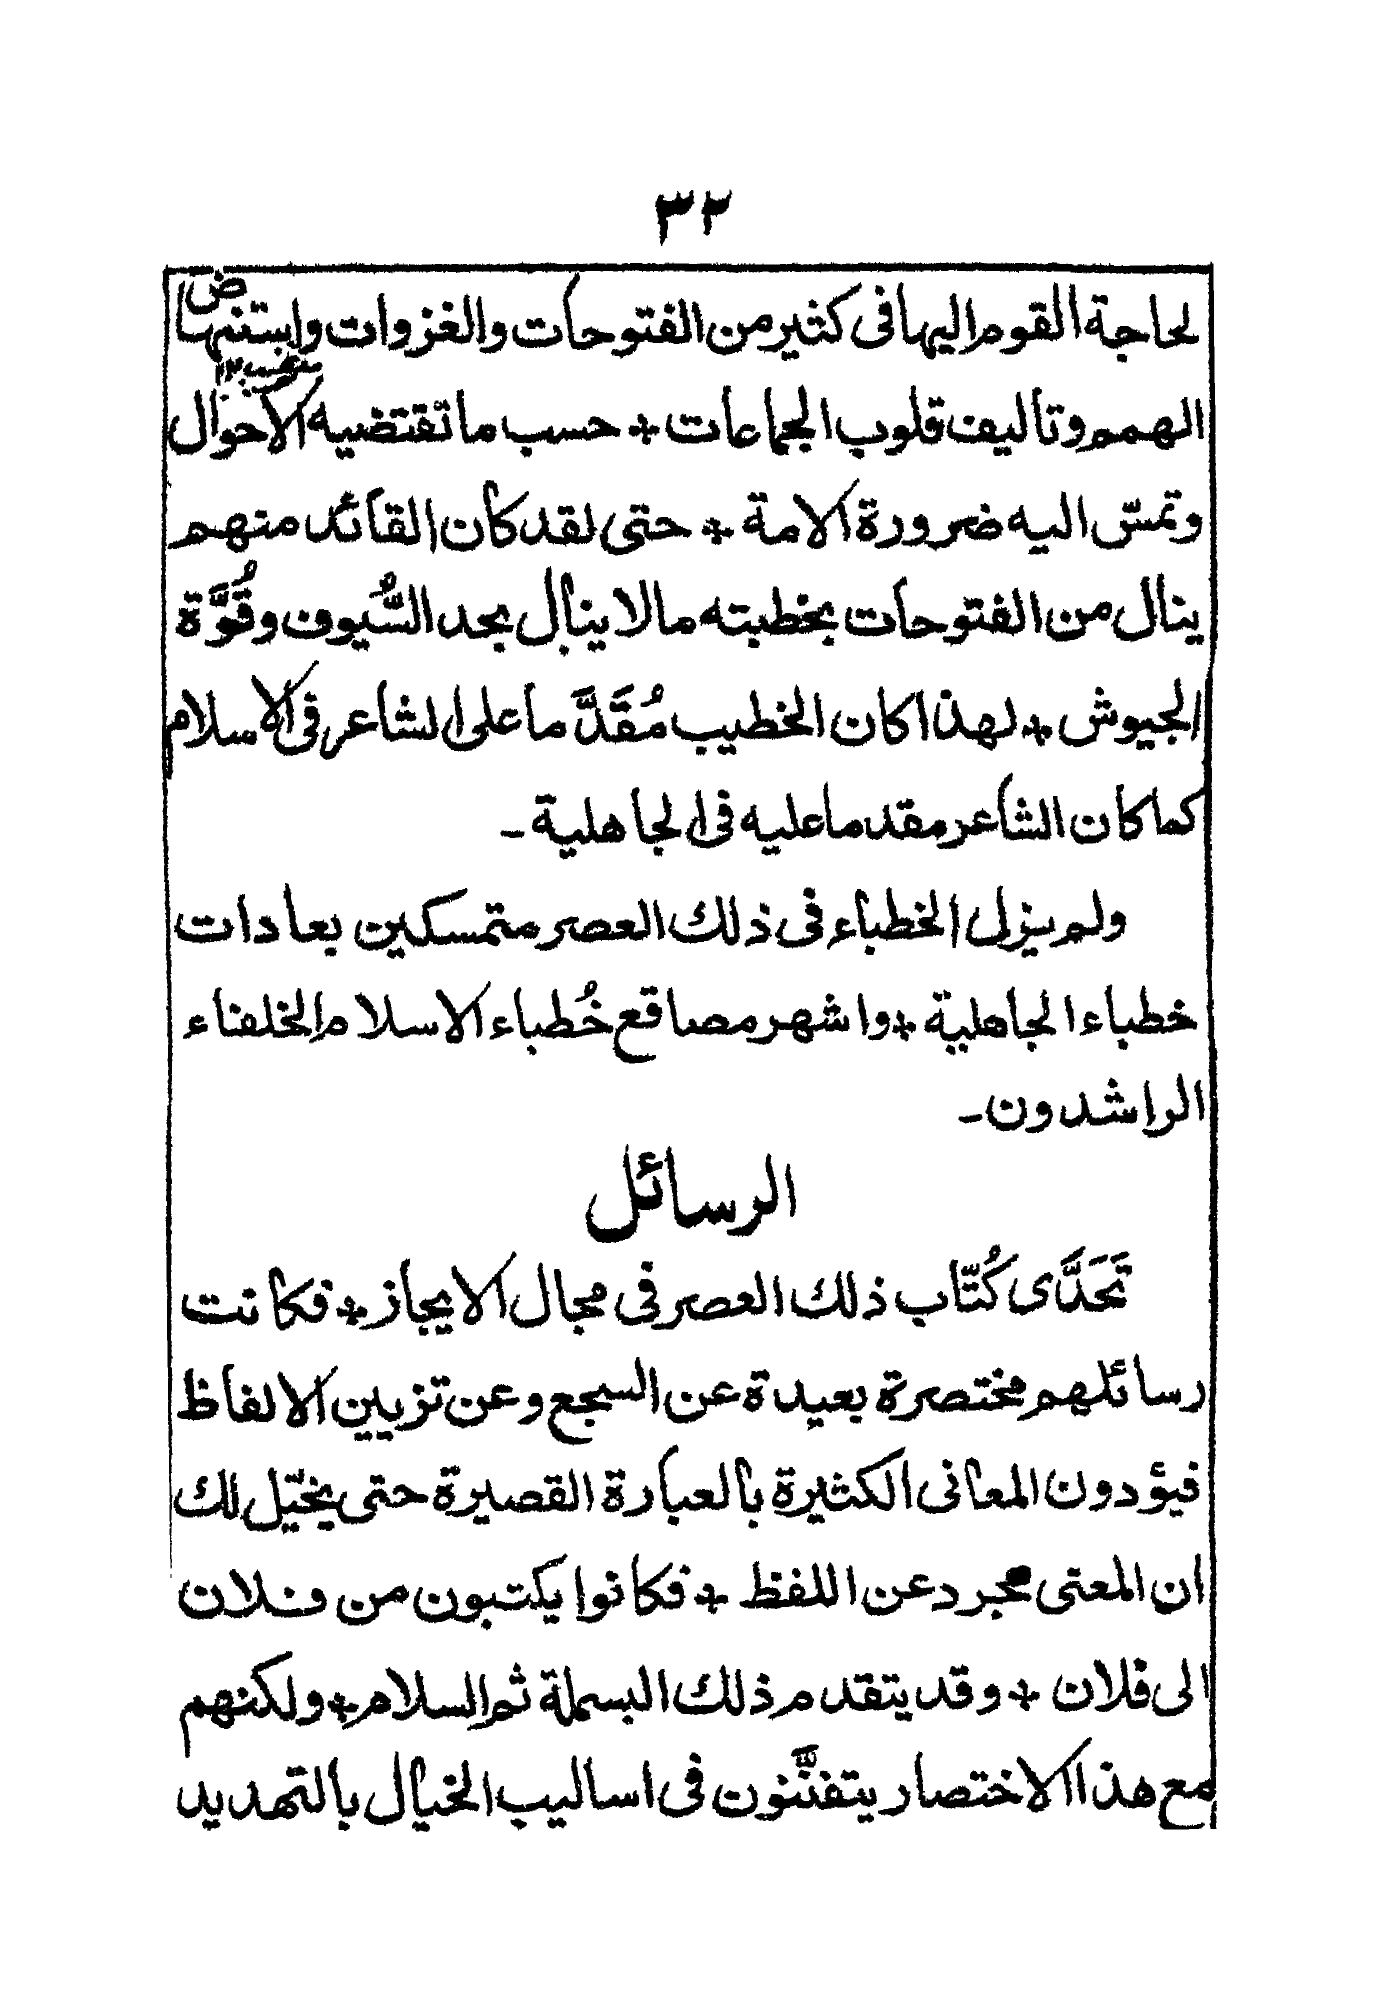 ٣٢
لحاجة القوم اليها فى كثير من الفتوحات والغزوات واستنهاض
الهمم وتأليف قلوب الجماعات * حسب ما تقتضيه الاحوال
وتمسّ اليه ضرورة الامة * حتى لقد كان القائد منهم
ينال من الفتوحات بخطبته ما لا ينال بحد السُّيوف وقُوَّة
الجيوش * لهذا كان الخطيب مُقَدَّما على الشاعر فى الاسلام
كما كان الشاعر مقدما عليه فى الجاهلية ـ
ولم يزل الخطباء فى ذلك العصر متمسكين بعادات
خطباء الجاهلية * واشهر مصاقع خُطباء الاسلام الخلفاء
الراشدون ـ
الرسائل
تَحَدَّى كُتّاب ذلك العصر فى مجال الايجاز * فكانت
رسائلهم مختصرة بعيدة عن السجع وعن تزيين الالفاظ
فيؤدون المعانى الكثيرة بالعبارة القصيرة حتى يخيّل لك
ان المعنى مجرد عن اللفظ * فكانوا يكتبون من فلان
الى فلان * وقد يتقدم ذلك البسملة ثم السلام * ولكنهم
مع هذا الاختصار يتفنَّنون فى اساليب الخيال بالتهديد